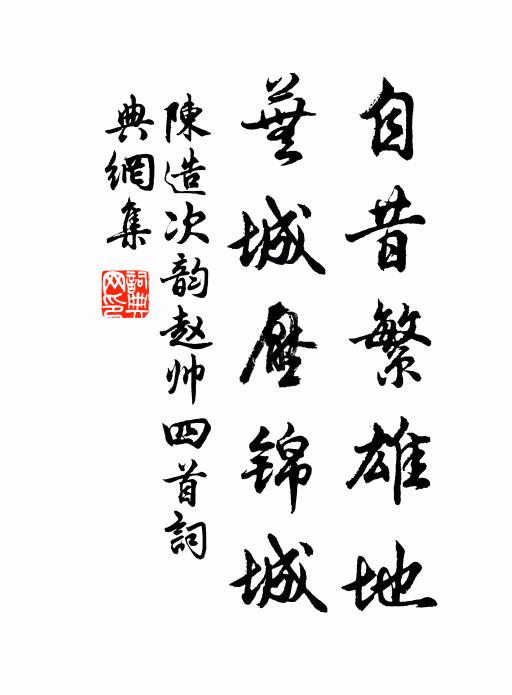 自昔繁雄地
蕪城壓锦城
陳造次韵赵帅四首詞
典網集
詞典
网印